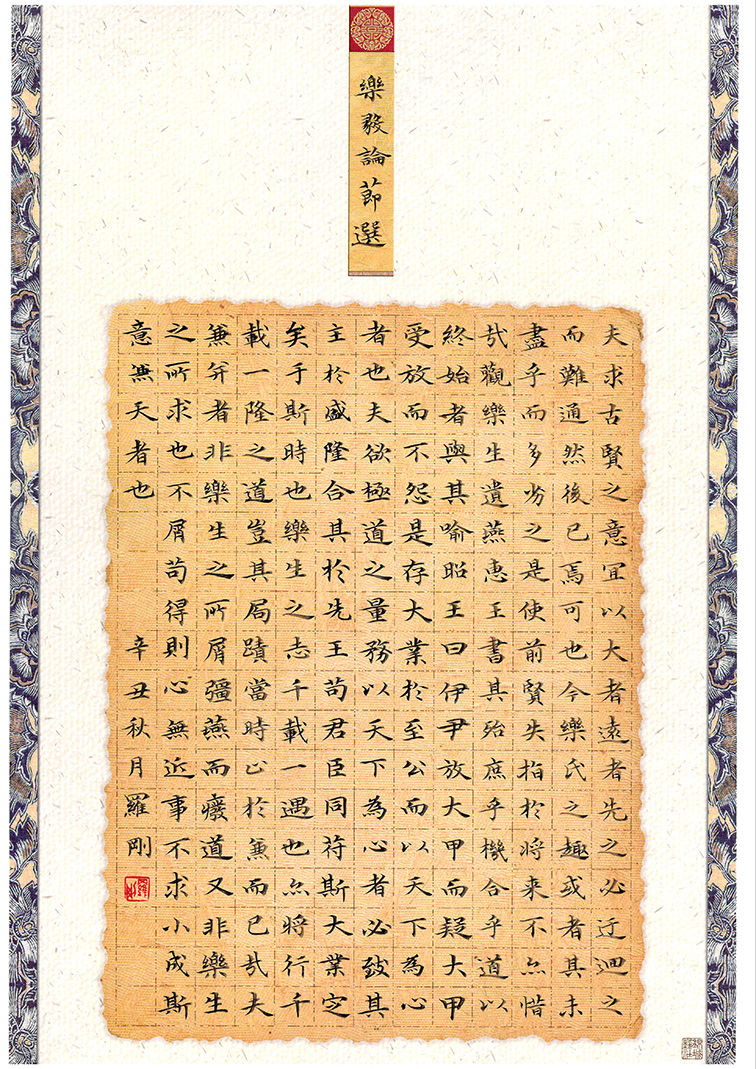 樂毅論莭選
夫求古賢之意宜以大者遠者先之必迂迴之
而難通然後已焉可也今樂氏之趣或者其未
盡乎而多劣之是使前賢失指於将来不亦惜
哉觀樂生遺燕惠王書其殆庶乎機合乎道以
終始者與其喻昭王曰伊尹放大甲而疑大甲
受放而不怨是存大業於至公而以天下為心
者也夫欲極道之量務以天下為心者必致其
主於盛隆合其於先王苟君臣同苻斯大業定
矣于斯時也樂生之志千載一遇也亦将行千
載一隆之道豈其局蹟當時止於兼而已哉夫
兼并者非樂生之所屑彊燕而癈道又非樂生
之所求也不屑苟得則心無近事不求小成斯
意兼天者也 辛丑秋月羅剛